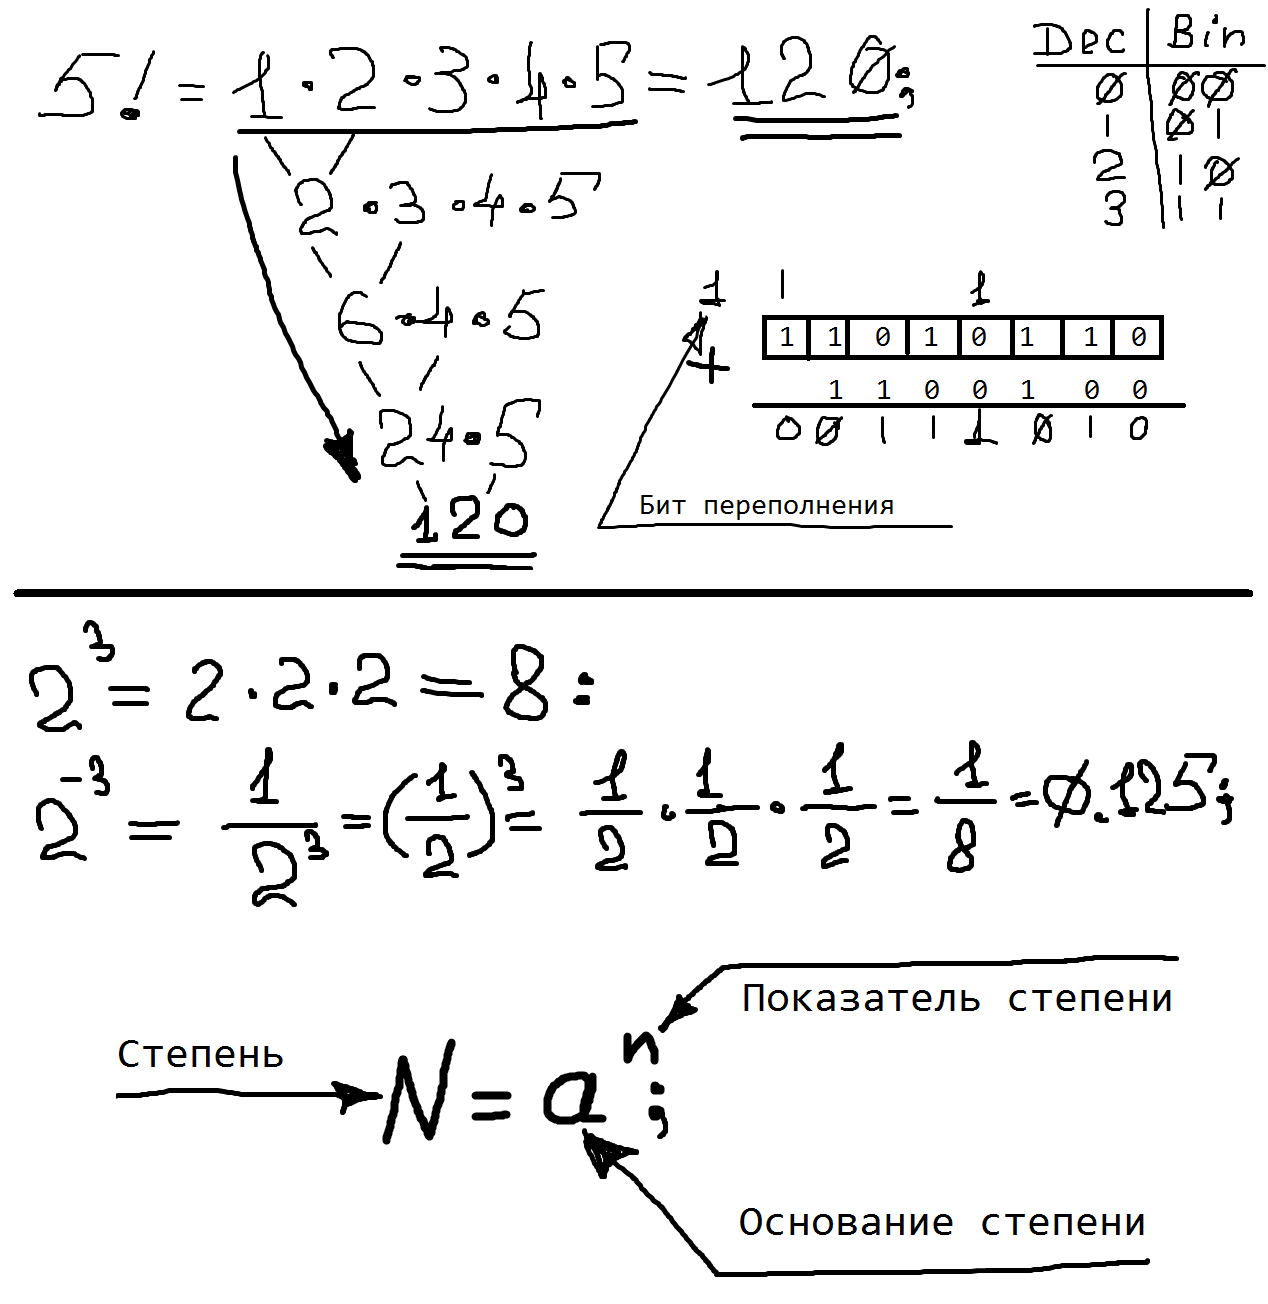 5! = 1 · 2 · 3 · 4 · 5 = 120;
2 · 3 · 4 · 5
6 · 4 · 5
24 · 5
120
Dec Bin
0 00
1 01
2 10
3 11
1 1 1
+ 1 1 0 1 0 1 1 0
1 1 0 0 1 0 0
0 0 1 1 1 0 1 0
Бит переполнения
2³ = 2 · 2 · 2 = 8 :
2⁻³ = 1/2³ = (1/2)³ = 1/2 · 1/2 · 1/2 = 1/8 = 0.125;
Показатель степени
Степень
N = aⁿ;
Основание степени